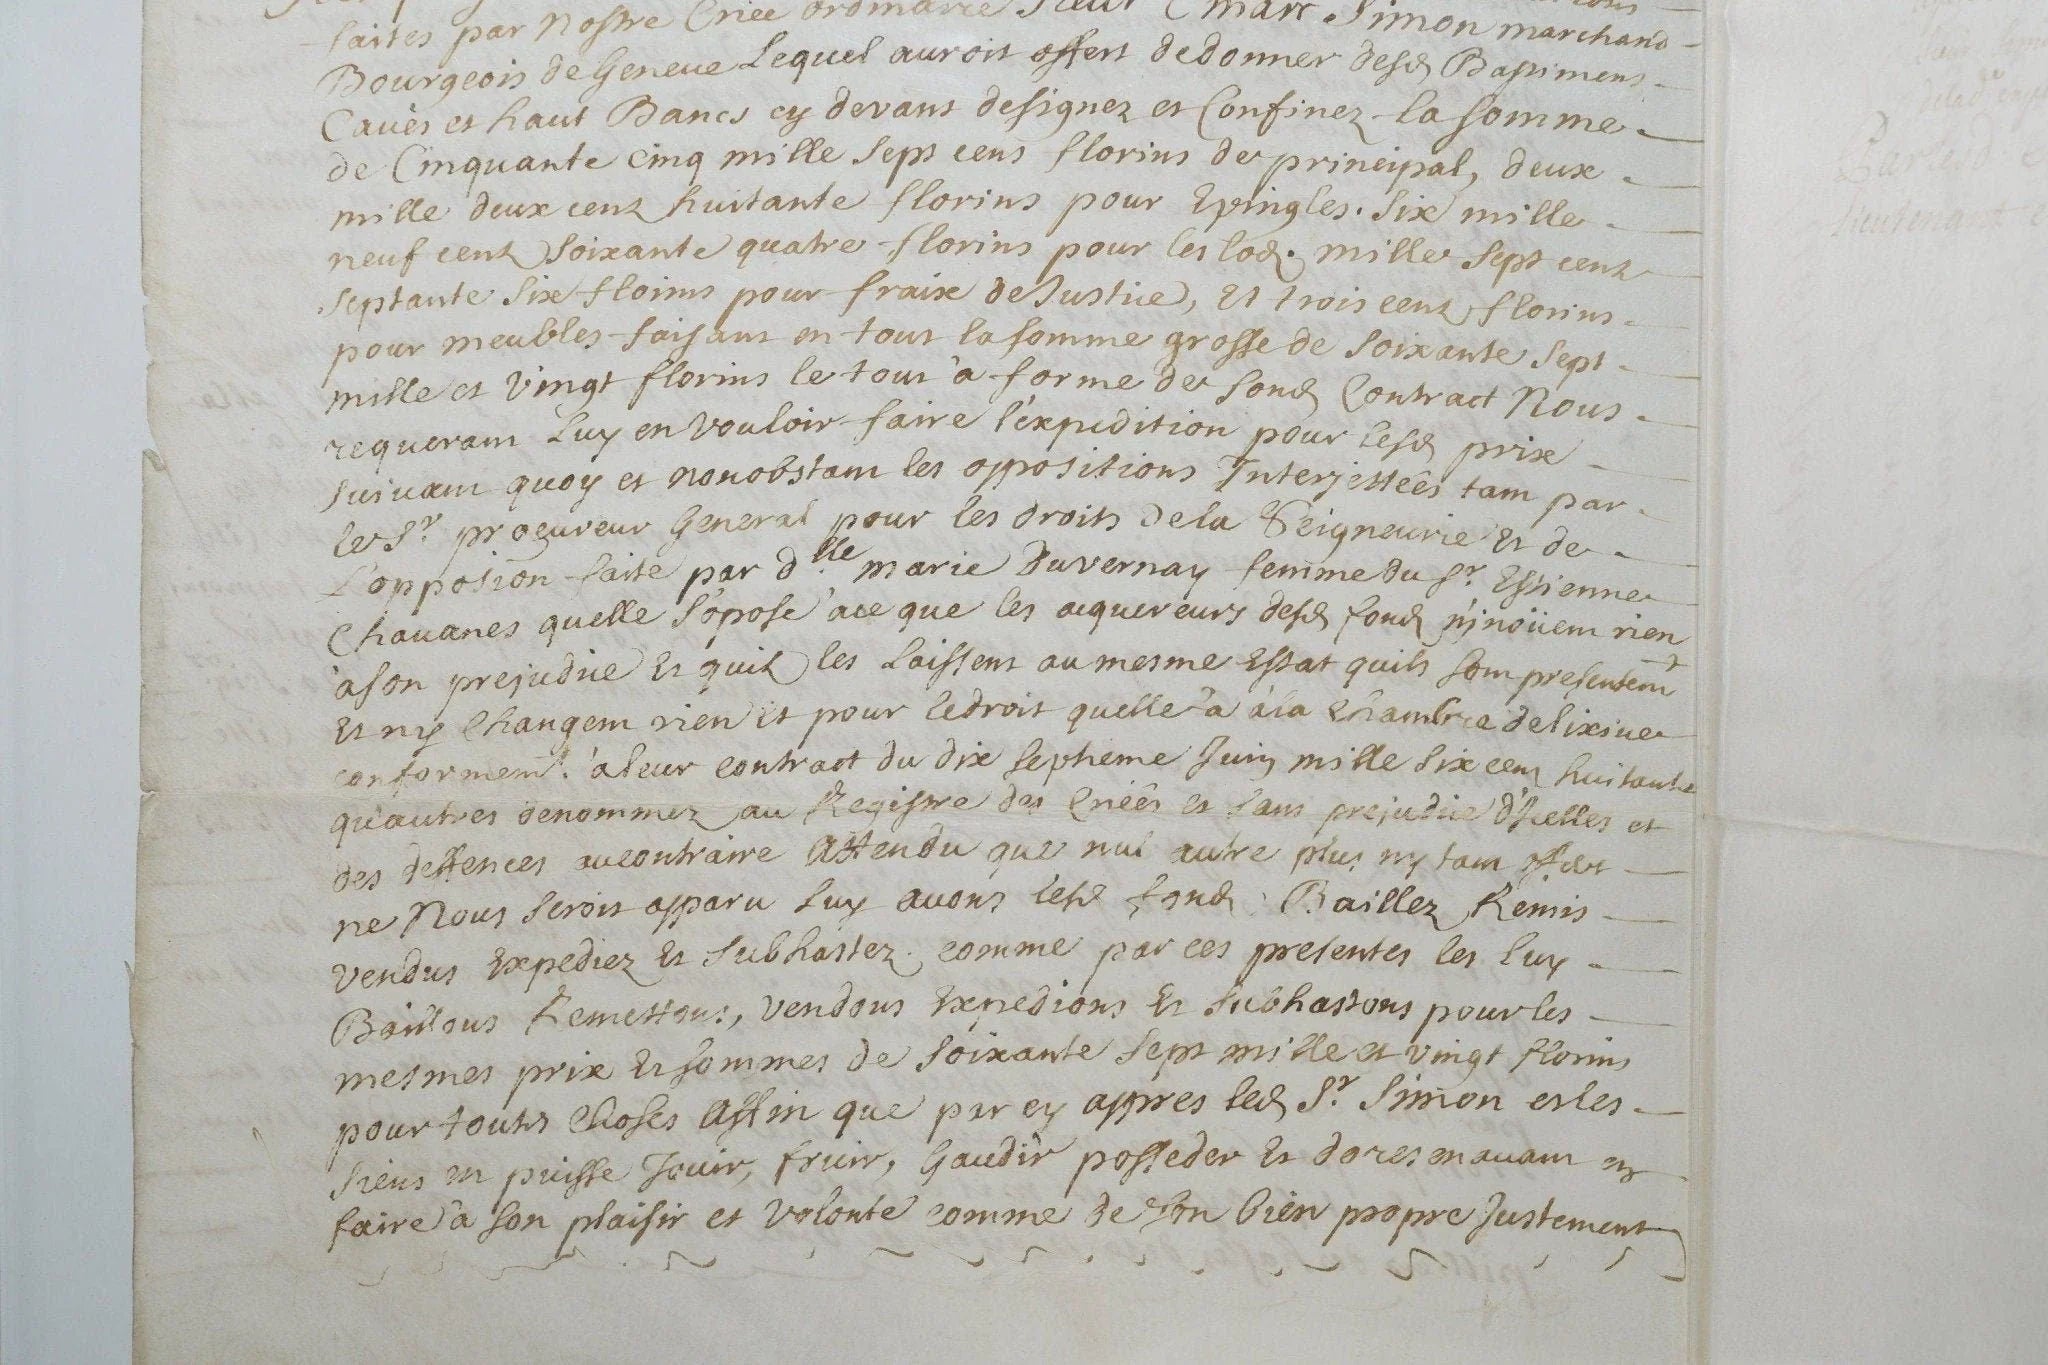 faites par Nostre Criée ordinaire Sieur Marc Simon marchand
Bourgeois de Geneve Lequel auroit offert de donner desd Bastimens
Caves et haut Bancs cy devant designez et Confinez la somme
de Cinquante cinq mille sept cens florins de principal, deux
mille deux cenz huitante florins pour Epingles. Six mille
neuf cenz soixante quatre florins pour les lods. mille sept cenz
septante six florins pour fraix de Justice, Et trois cenz florins
pour meubles faisant en tout la somme grosse de soixante sept
mille et vingt florins le tout à forme de sond Contract Nous
requerant Luy en vouloir faire l'expedition pour lesd prix
suivant quoy et nonobstant les oppositions Interjettées tant par
le Sr. procureur General pour les droits de la Seigneurie Et de
L'opposition faite par dlle marie Duvernay femme du Sr. Estienne
Chavanes quelle s'opose à ce que les acquereurs desd fond n'inoüent rien
à son prejudice Et quilz les laissent au mesme Estat quils sont presentemt
Et ny Changent rien et pour le droit quelle à à la Chambre de lixive
conformemt. à leur contract du dix septieme Juin mille six cenz huitante
qu'autres denommez au Registre des Criées et sans prejudice d'Icelles et
des deffences au contraire Attendu que nul autre plus ny tant offrant
ne Nous seroit apparu Luy avons lesd fond Baillez Remis
vendus Expediez Et Subhastez comme par ces presentes les luy
Baillons Remettons, vendons Expedions Et Subhastons pour les
mesmes prix Et sommes de soixante sept mille et vingt florins
pour toutes choses Affin que par cy appres led Sr. Simon et les
siens en puisse Jouir, fruir, Gaudir posseder Et doresenavant en
faire à son plaisir et volonté comme de son bien propre Justement